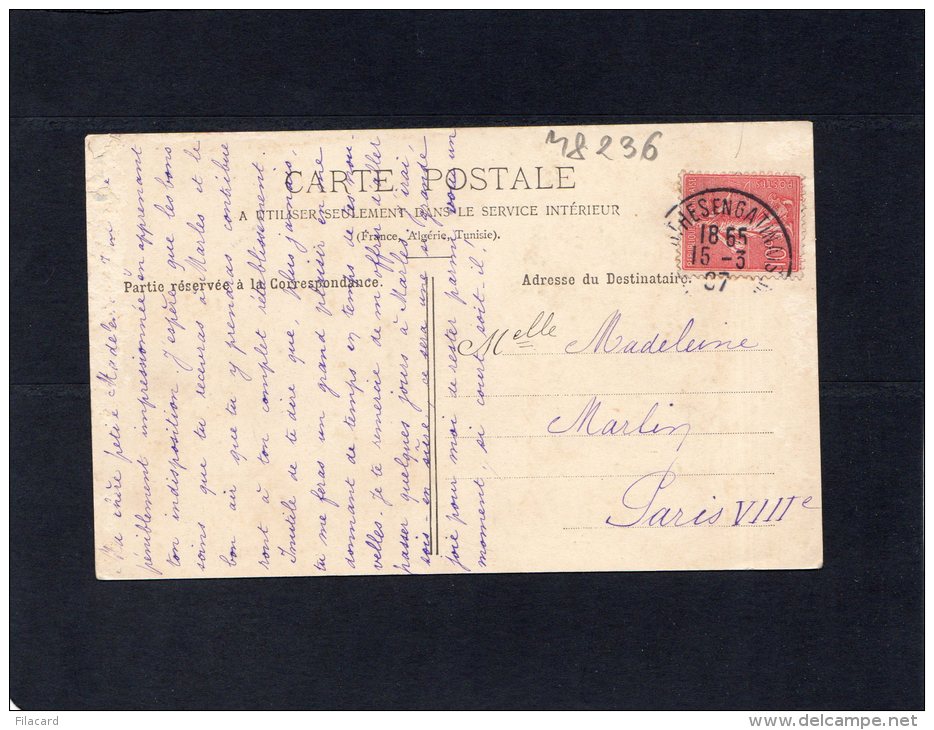 48236
CARTE POSTALE
A UTILISER SEULEMENT DANS LE SERVICE INTÉRIEUR
(France, Algérie, Tunisie).
Partie réservée à la Correspondance.
Adresse du Destinataire.
18 65
15 - 3
07
POSTES
Melle Madeleine
Martin
Paris VIIIe
Ma chère petite Madeleine
péniblement impressionnée en apprenant
ton indisposition j'espère que les bons
soins que tu recevras à Marles et le
bon air que tu y prendras contribue
ront à ton complet rétablissement.
Inutile de te dire que, Plus jamais,
tu me feras un grand plaisir en me
donnant de temps en temps de tes nou-
velles. Je te remercie de m'offrir d'aller
passer quelques jours à Marles j'irai
sois-en sûre ce sera une si grande
joie pour moi de rester parmi vous un
moment, si court soit-il.
Filacard
www.delcampe.net